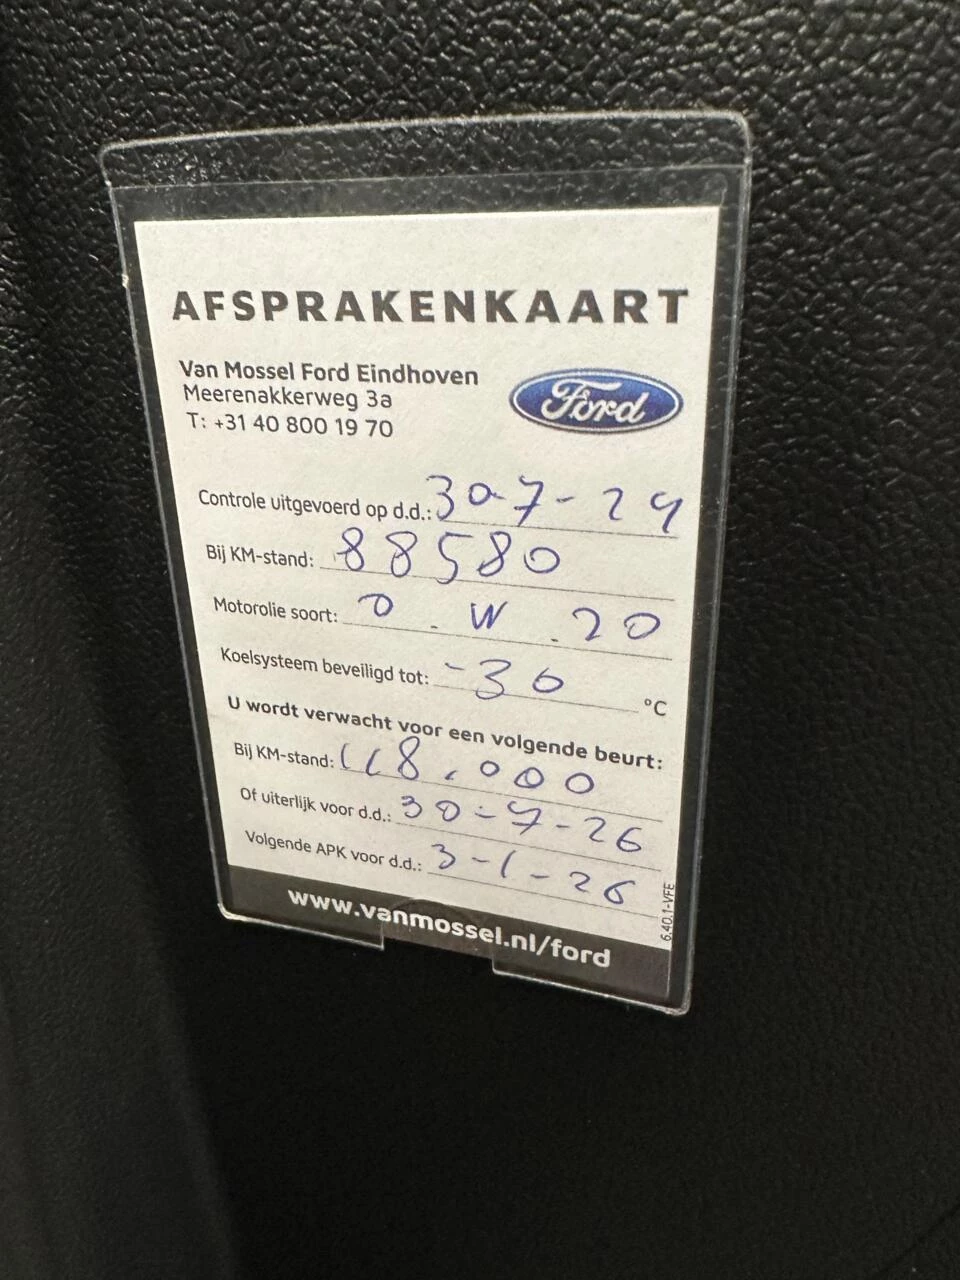 AFSPRAKENKAART
Van Mossel Ford Eindhoven
Meerenakkerweg 3a
T: +31 40 800 19 70
Ford
Controle uitgevoerd op d.d.: 30-7-24
Bij KM-stand: 88580
Motorolie soort: 0.W.20
Koelsysteem beveiligd tot: -30 °C
U wordt verwacht voor een volgende beurt:
Bij KM-stand: 118.000
Of uiterlijk voor d.d.: 30-7-26
Volgende APK voor d.d.: 3-1-26
6.40.1-VFE
www.vanmossel.nl/ford